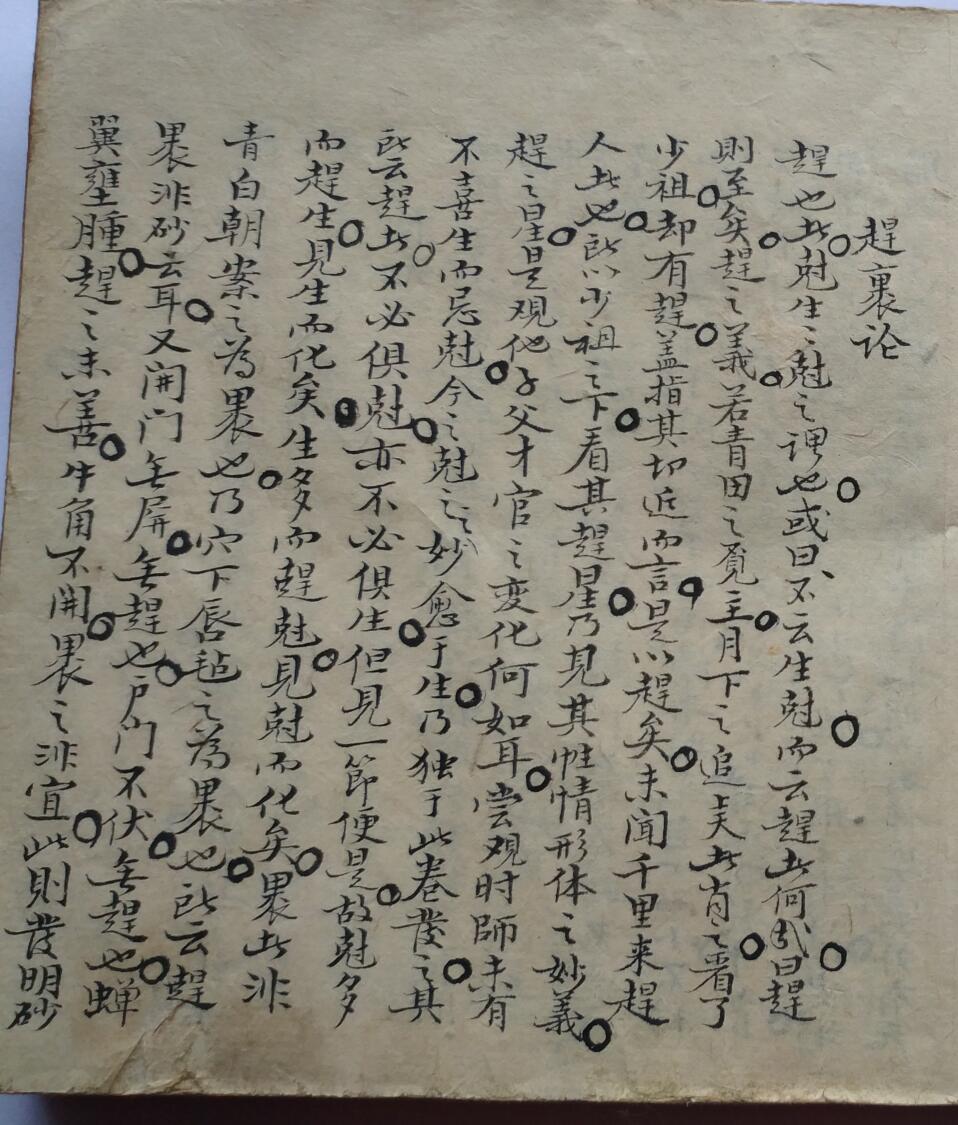 趕裹论
趕也者尅生生尅之谓也或曰不云生尅而云趕者何哉曰趕
則至矣趕之義若青田之覓主月下之追夫者肖之看了
少祖却有趕盖指其切近而言是以趕矣未闻千里来趕
人者也所以少祖之下看其趕星乃見其性情形体之妙義
趕之星是观他子父才官之变化何如耳尝观时師未有
不喜生而忌尅今之尅之之妙愈于生乃独于此卷發之其
所云趕者不必俱尅亦不必俱生但見一節便是故尅多
而趕生見生而化矣生多而趕尅見尅而化矣裹者非
青白朝案之為裹也乃穴下唇毡之為裹也所云趕
裹非砂云耳又開门无屏无趕也户门不伏无趕也蝉
翼壅腫趕之未善牛角不開裹之非宜此則發明砂